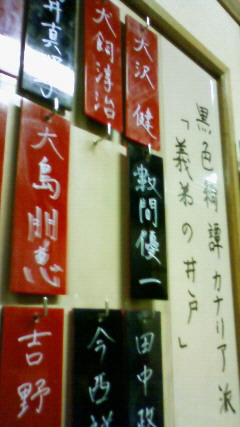 黒色綺譚カナリア派
「義弟の井戸」
大沢 健
犬飼淳治
井真
大島朋恵
数間優一
吉野
今西
田中